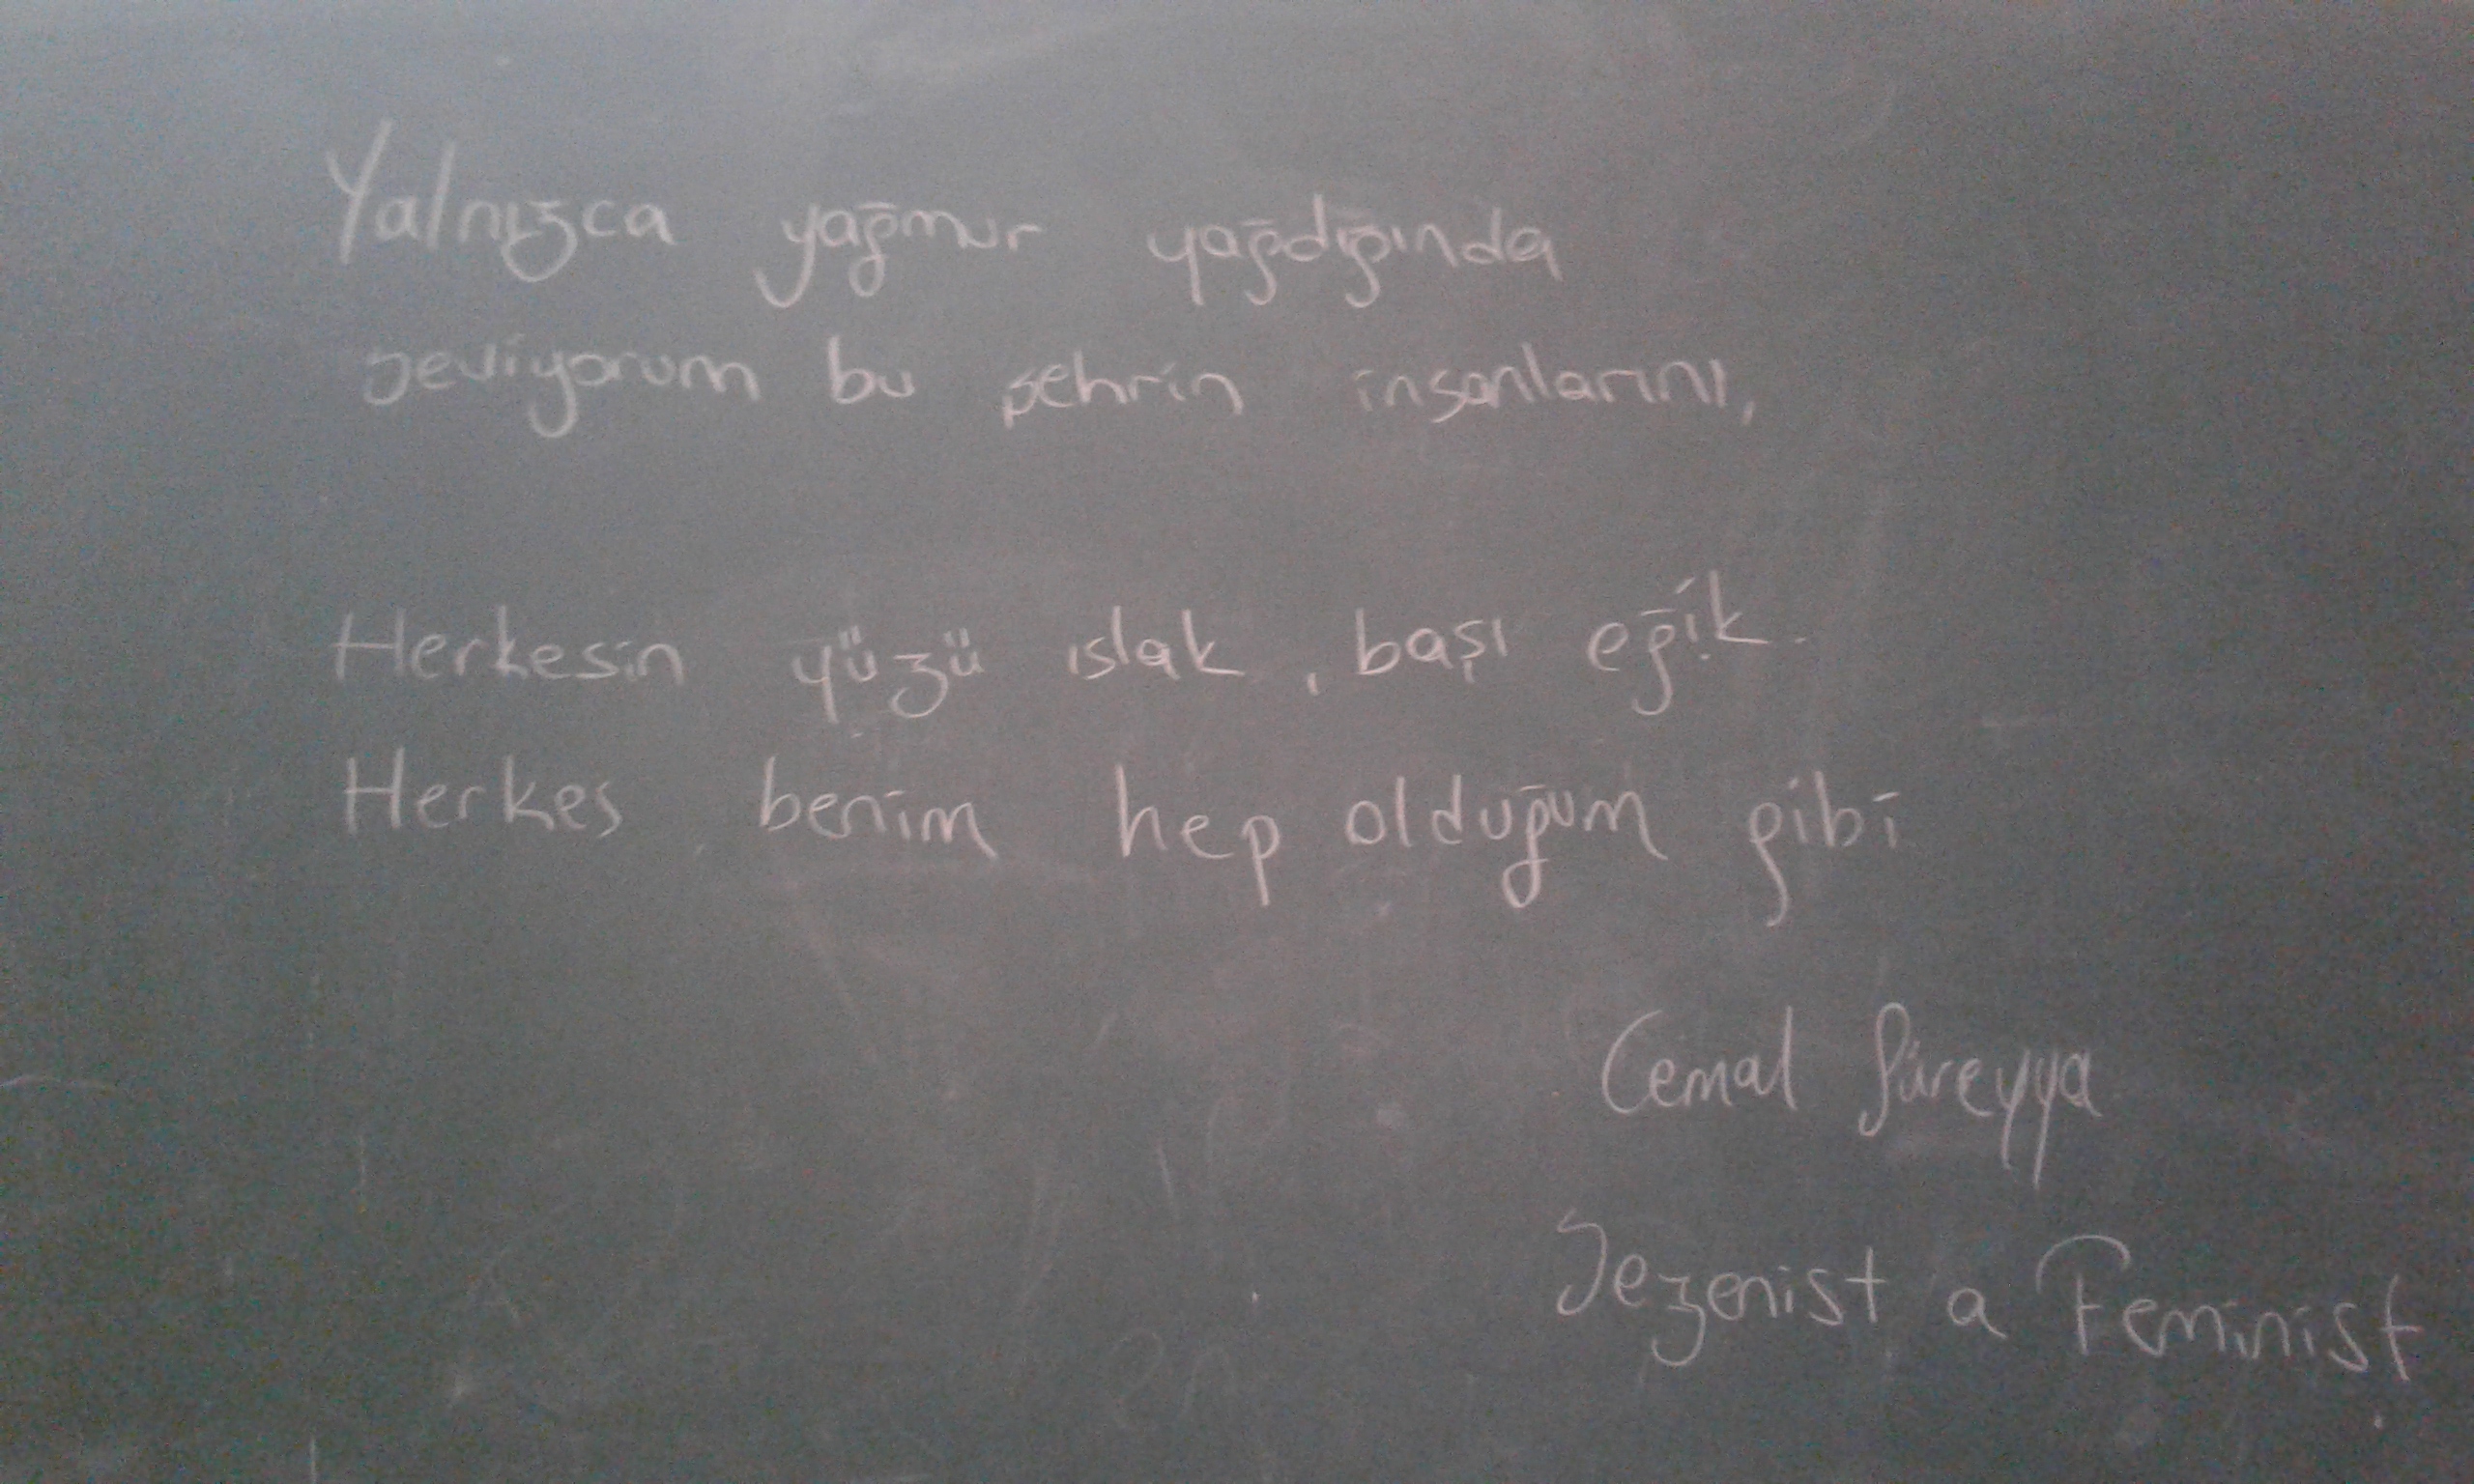 Yalnızca yağmur yağdığında
seviyorum bu şehrin insanlarını,
Herkesin yüzü ıslak, başı eğik.
Herkes benim hep olduğum gibi
Cemal Süreyya
Sezenist a Feminist